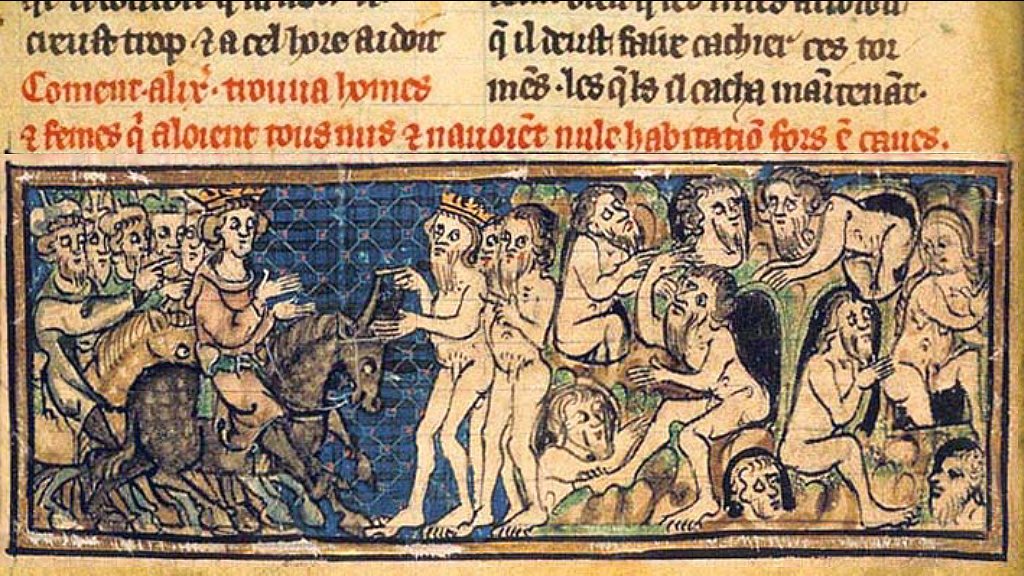 trop ⁊ a cel hore
Coment alix᾿. trouua homes
q̃ il deust faire cachier ces tor
mẽs . les q̃ls il cacha maĩtenãt.
⁊ femes qͥ aloient tous nus ⁊ nauoiẽt nule habitatiõ fors ẽ caues.